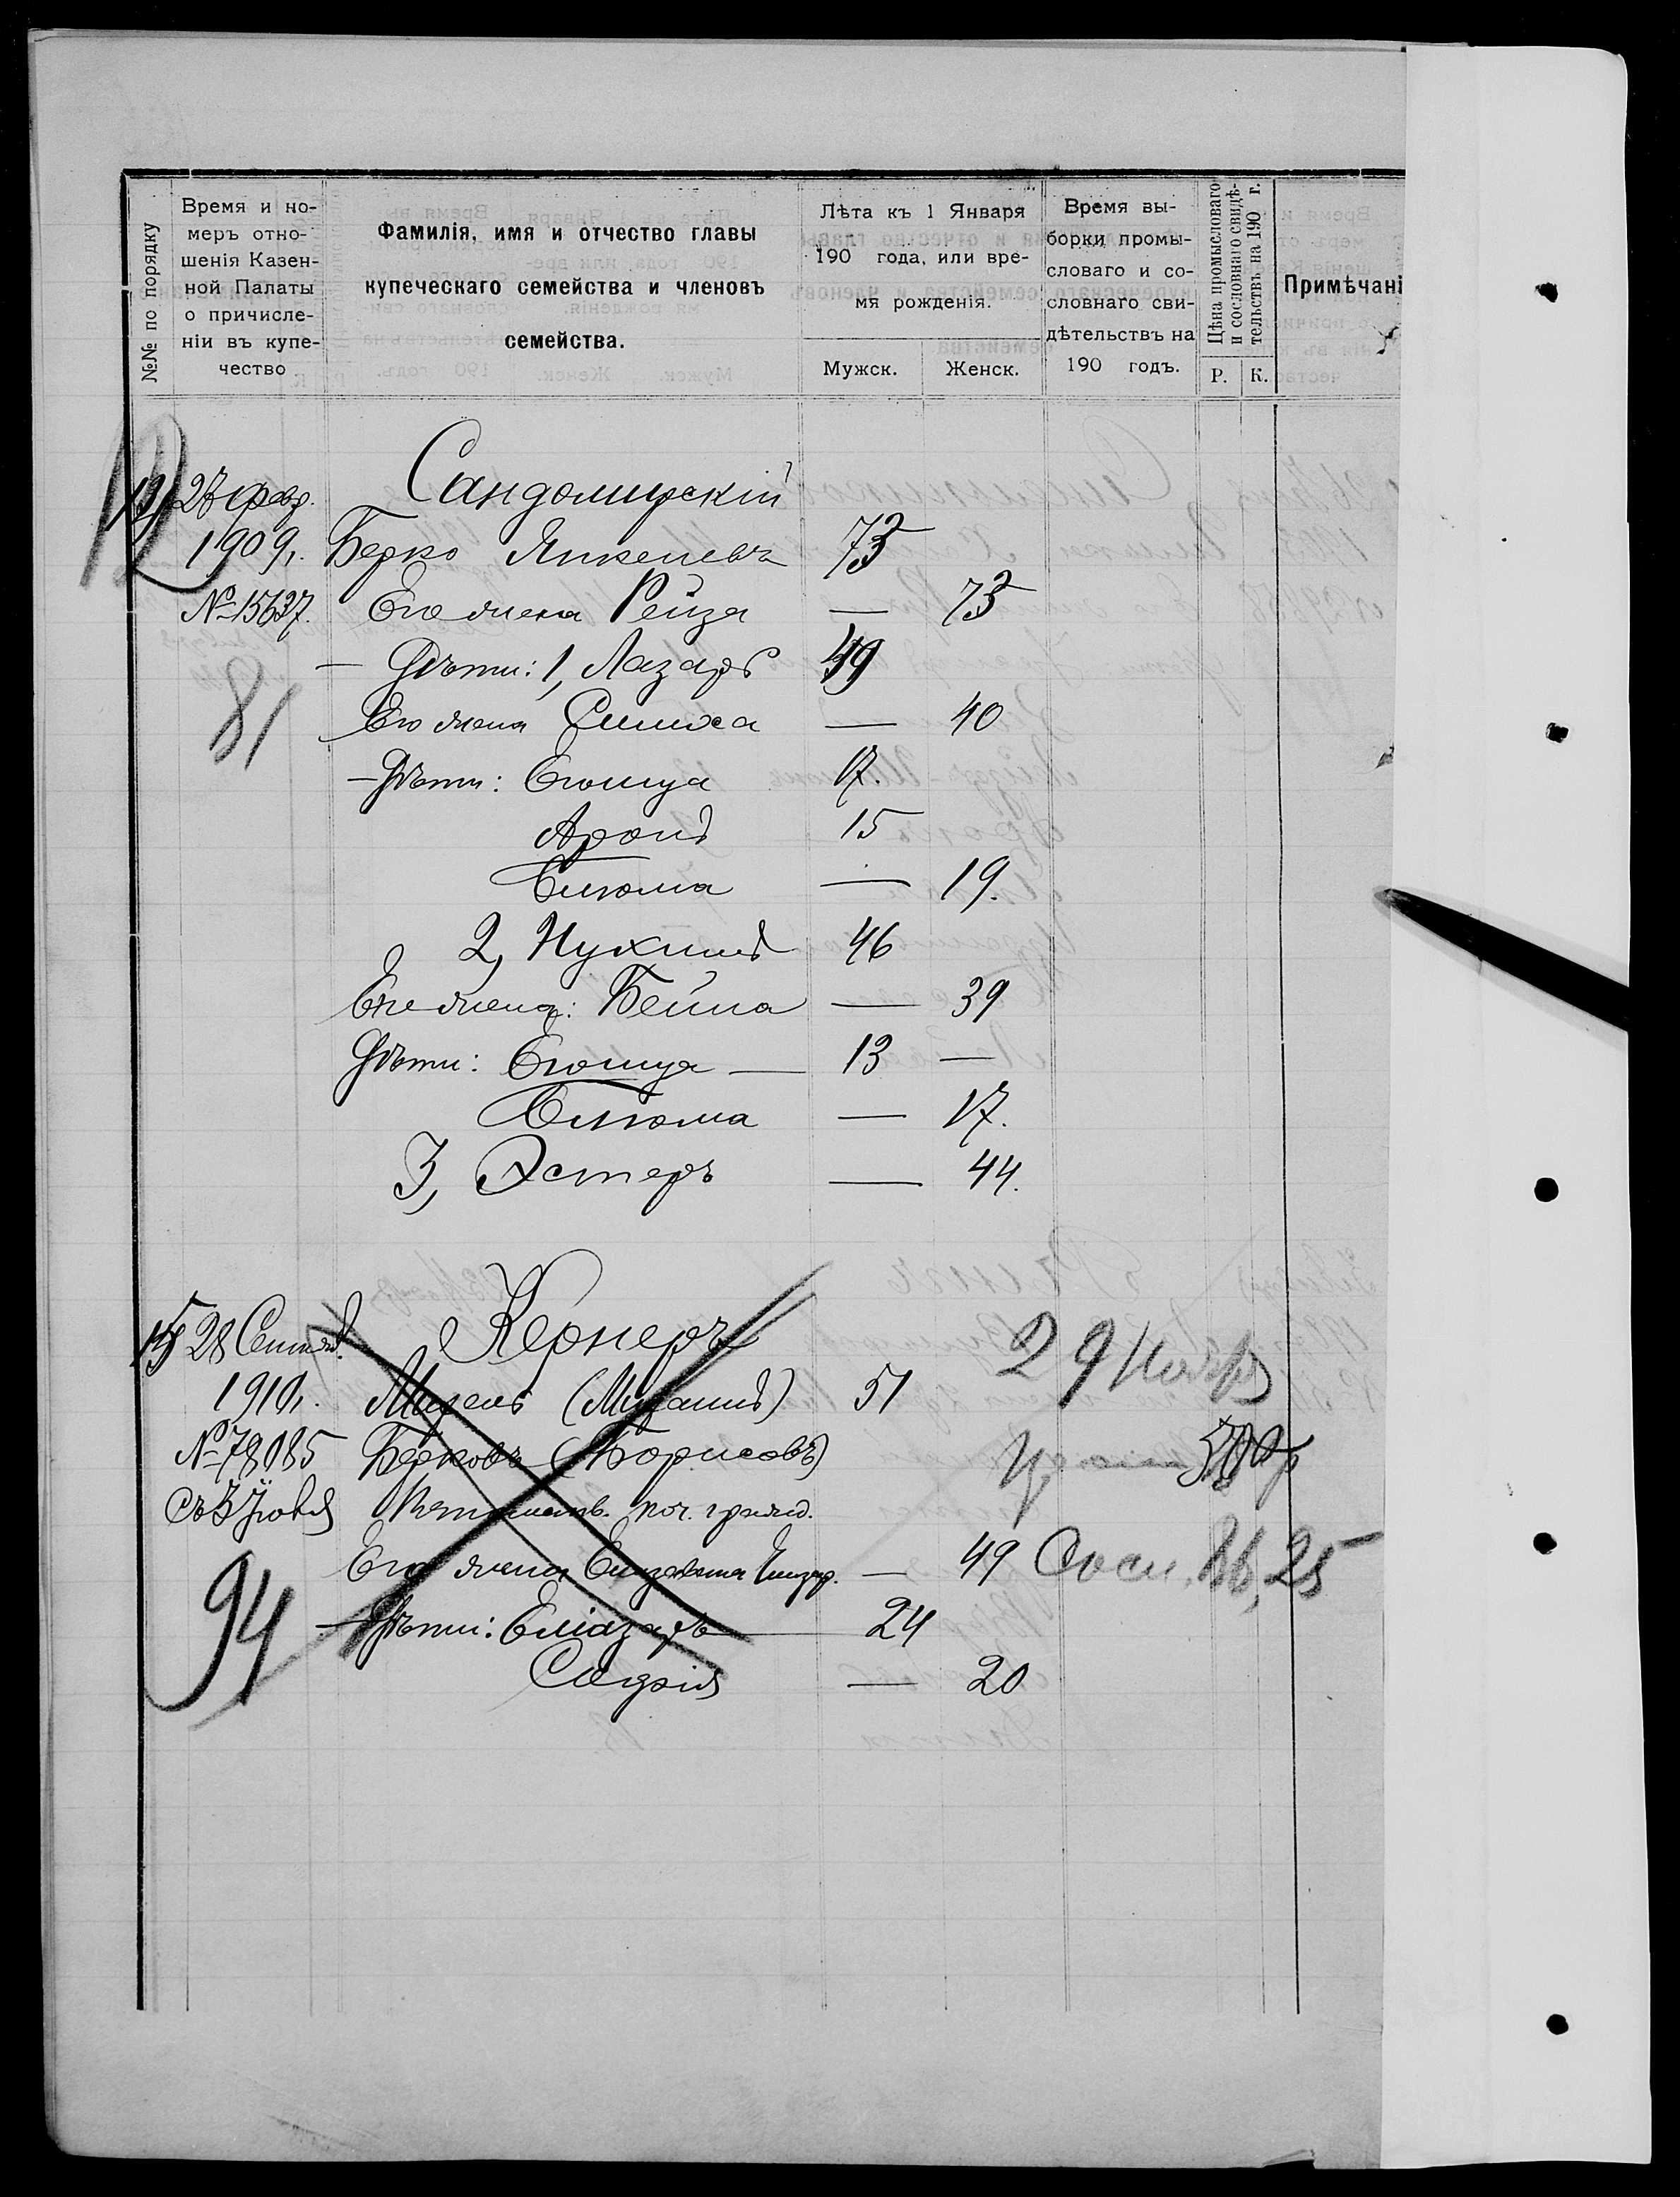 №№ по порядку
Время и но-
меръ отно-
шенія Казен-
ной Палаты
о причисле-
ніи въ купе-
чество
Фамилія, имя и отчество главы
купеческаго семейства и членовъ
семейства.
Лѣта къ 1 Января
190 года, или вре-
мя рожденія.
Мужск. Женск.
Время вы-
борки промы-
словаго и со-
словнаго сви-
дѣтельствъ на
190 годъ.
Цѣна промысловаго
и сословнаго свидѣ-
тельствъ на 190 г.
Р. К.
Примѣчані
12
Февр. Сандомирскій
1909. Берко Янкелевъ 73
№ 15637. Его жена Рейза — 73
— Дѣти: 1, Лазарь 49
81
Его жена Симха — 40
— Дѣти: Егошуа 17.
Аронъ 15
Блюма — 19.
2, Нухимъ 46
Его жена: Бейла — 39
Дѣти: Егошуа — 13 —
Блюма — 17.
3, Эстеръ — 44.
28 Сентяб. Кернеръ 29 Ноября
1910. Михель (Михаилъ) 51
№ 78085 Берковъ (Борисовъ) 500 р
Потомств. поч. гражд.
Его жена Елизавета — 49 Сосл. 86,25
94
— Дѣти: Еліазаръ — 24
Софія — 20